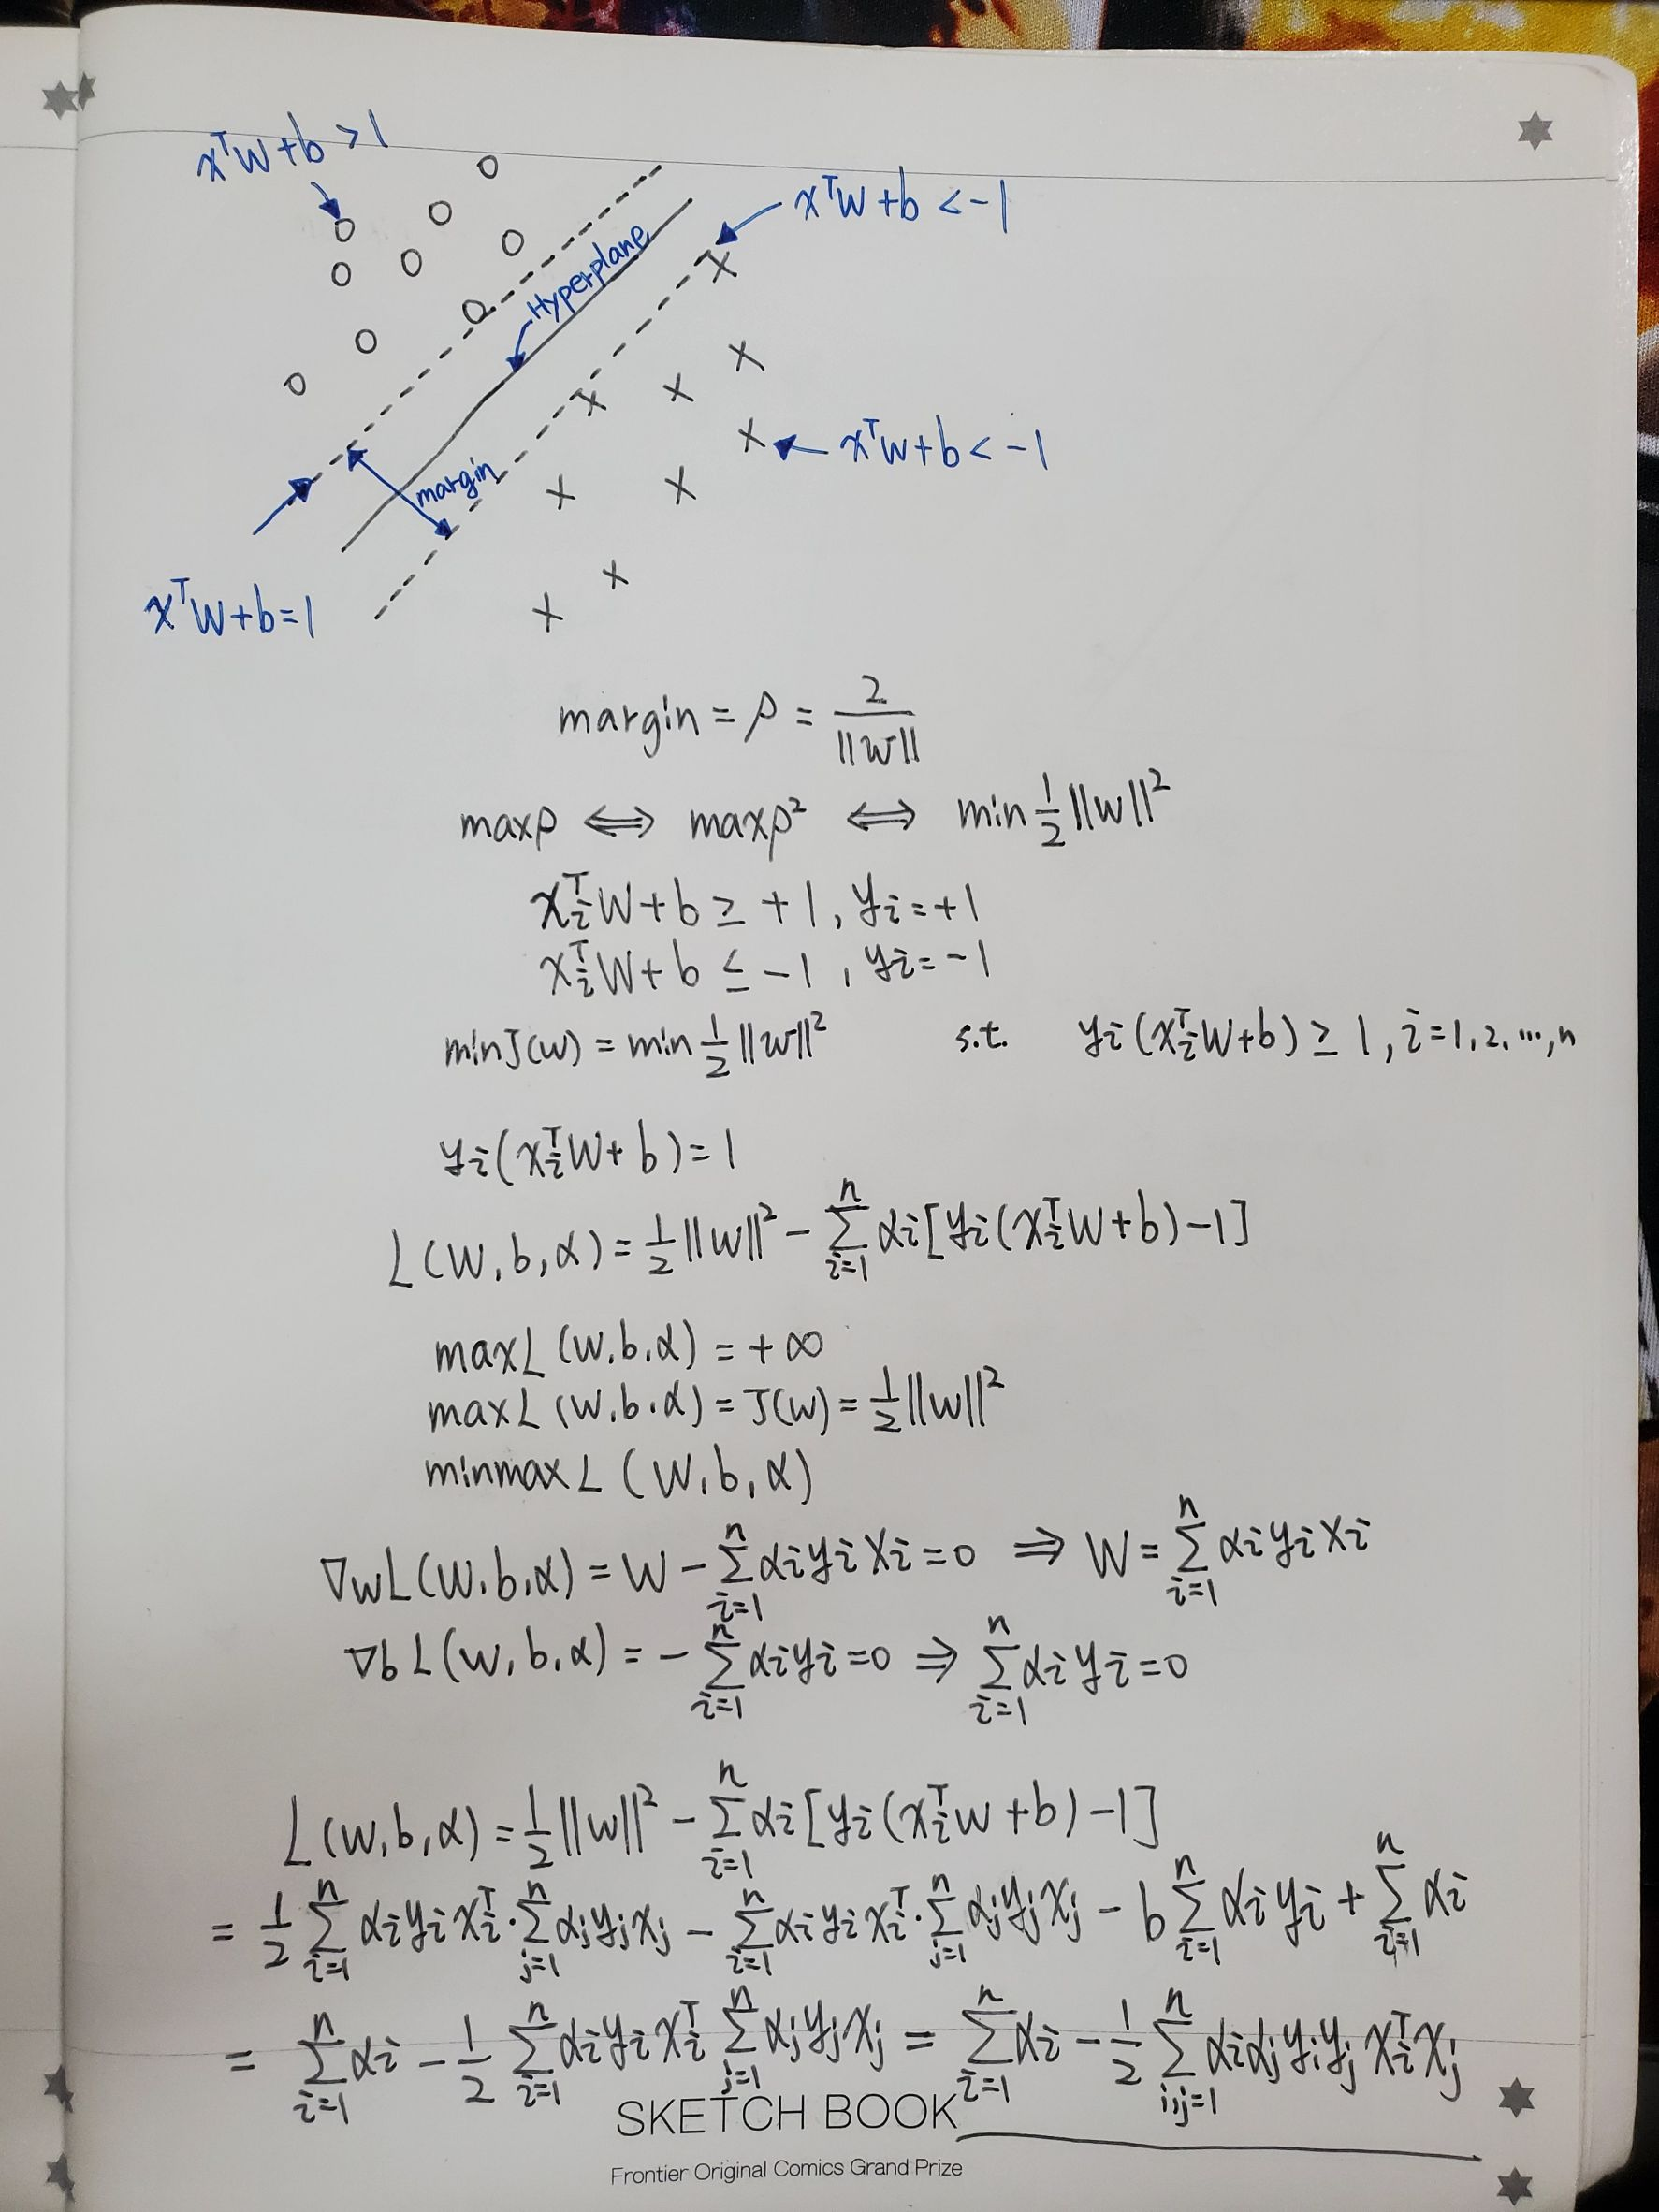 xᵀW+b>1
xᵀW+b<-1
Hyperplane
xᵀW+b<-1
margin
xᵀW+b=1
margin = ρ = 2/||w||
maxρ ⟺ maxρ² ⟺ min 1/2 ||w||²
xᵢᵀW+b ≥ +1, yᵢ=+1
xᵢᵀW+b ≤ -1, yᵢ=-1
minJ(w) = min 1/2 ||w||² s.t. yᵢ(xᵢᵀW+b) ≥ 1, i=1,2,...,n
yᵢ(xᵢᵀW+b)=1
L(W,b,α) = 1/2 ||w||² - ∑ⁿᵢ₌₁ αᵢ[yᵢ(xᵢᵀW+b)-1]
maxL(W,b,α) = +∞
maxL(W,b,α) = J(w) = 1/2 ||w||²
minmaxL(W,b,α)
∇wL(W,b,α) = W - ∑ⁿᵢ₌₁ αᵢyᵢxᵢ = 0 ⇒ W = ∑ⁿᵢ₌₁ αᵢyᵢxᵢ
∇bL(W,b,α) = - ∑ⁿᵢ₌₁ αᵢyᵢ = 0 ⇒ ∑ⁿᵢ₌₁ αᵢyᵢ = 0
L(W,b,α) = 1/2 ||w||² - ∑ⁿᵢ₌₁ αᵢ[yᵢ(xᵢᵀw+b)-1]
= 1/2 ∑ⁿᵢ₌₁ αᵢyᵢxᵢᵀ·∑ⁿⱼ₌₁ αⱼyⱼxⱼ - ∑ⁿᵢ₌₁ αᵢyᵢxᵢᵀ·∑ⁿⱼ₌₁ αⱼyⱼxⱼ - b∑ⁿᵢ₌₁ αᵢyᵢ + ∑ⁿᵢ₌₁ αᵢ
= ∑ⁿᵢ₌₁ αᵢ - 1/2 ∑ⁿᵢ₌₁ αᵢyᵢxᵢᵀ ∑ⁿⱼ₌₁ αⱼyⱼxⱼ = ∑ⁿᵢ₌₁ αᵢ - 1/2 ∑ⁿᵢ,ⱼ₌₁ αᵢαⱼyᵢyⱼxᵢᵀxⱼ
SKETCH BOOK
Frontier Original Comics Grand Prize